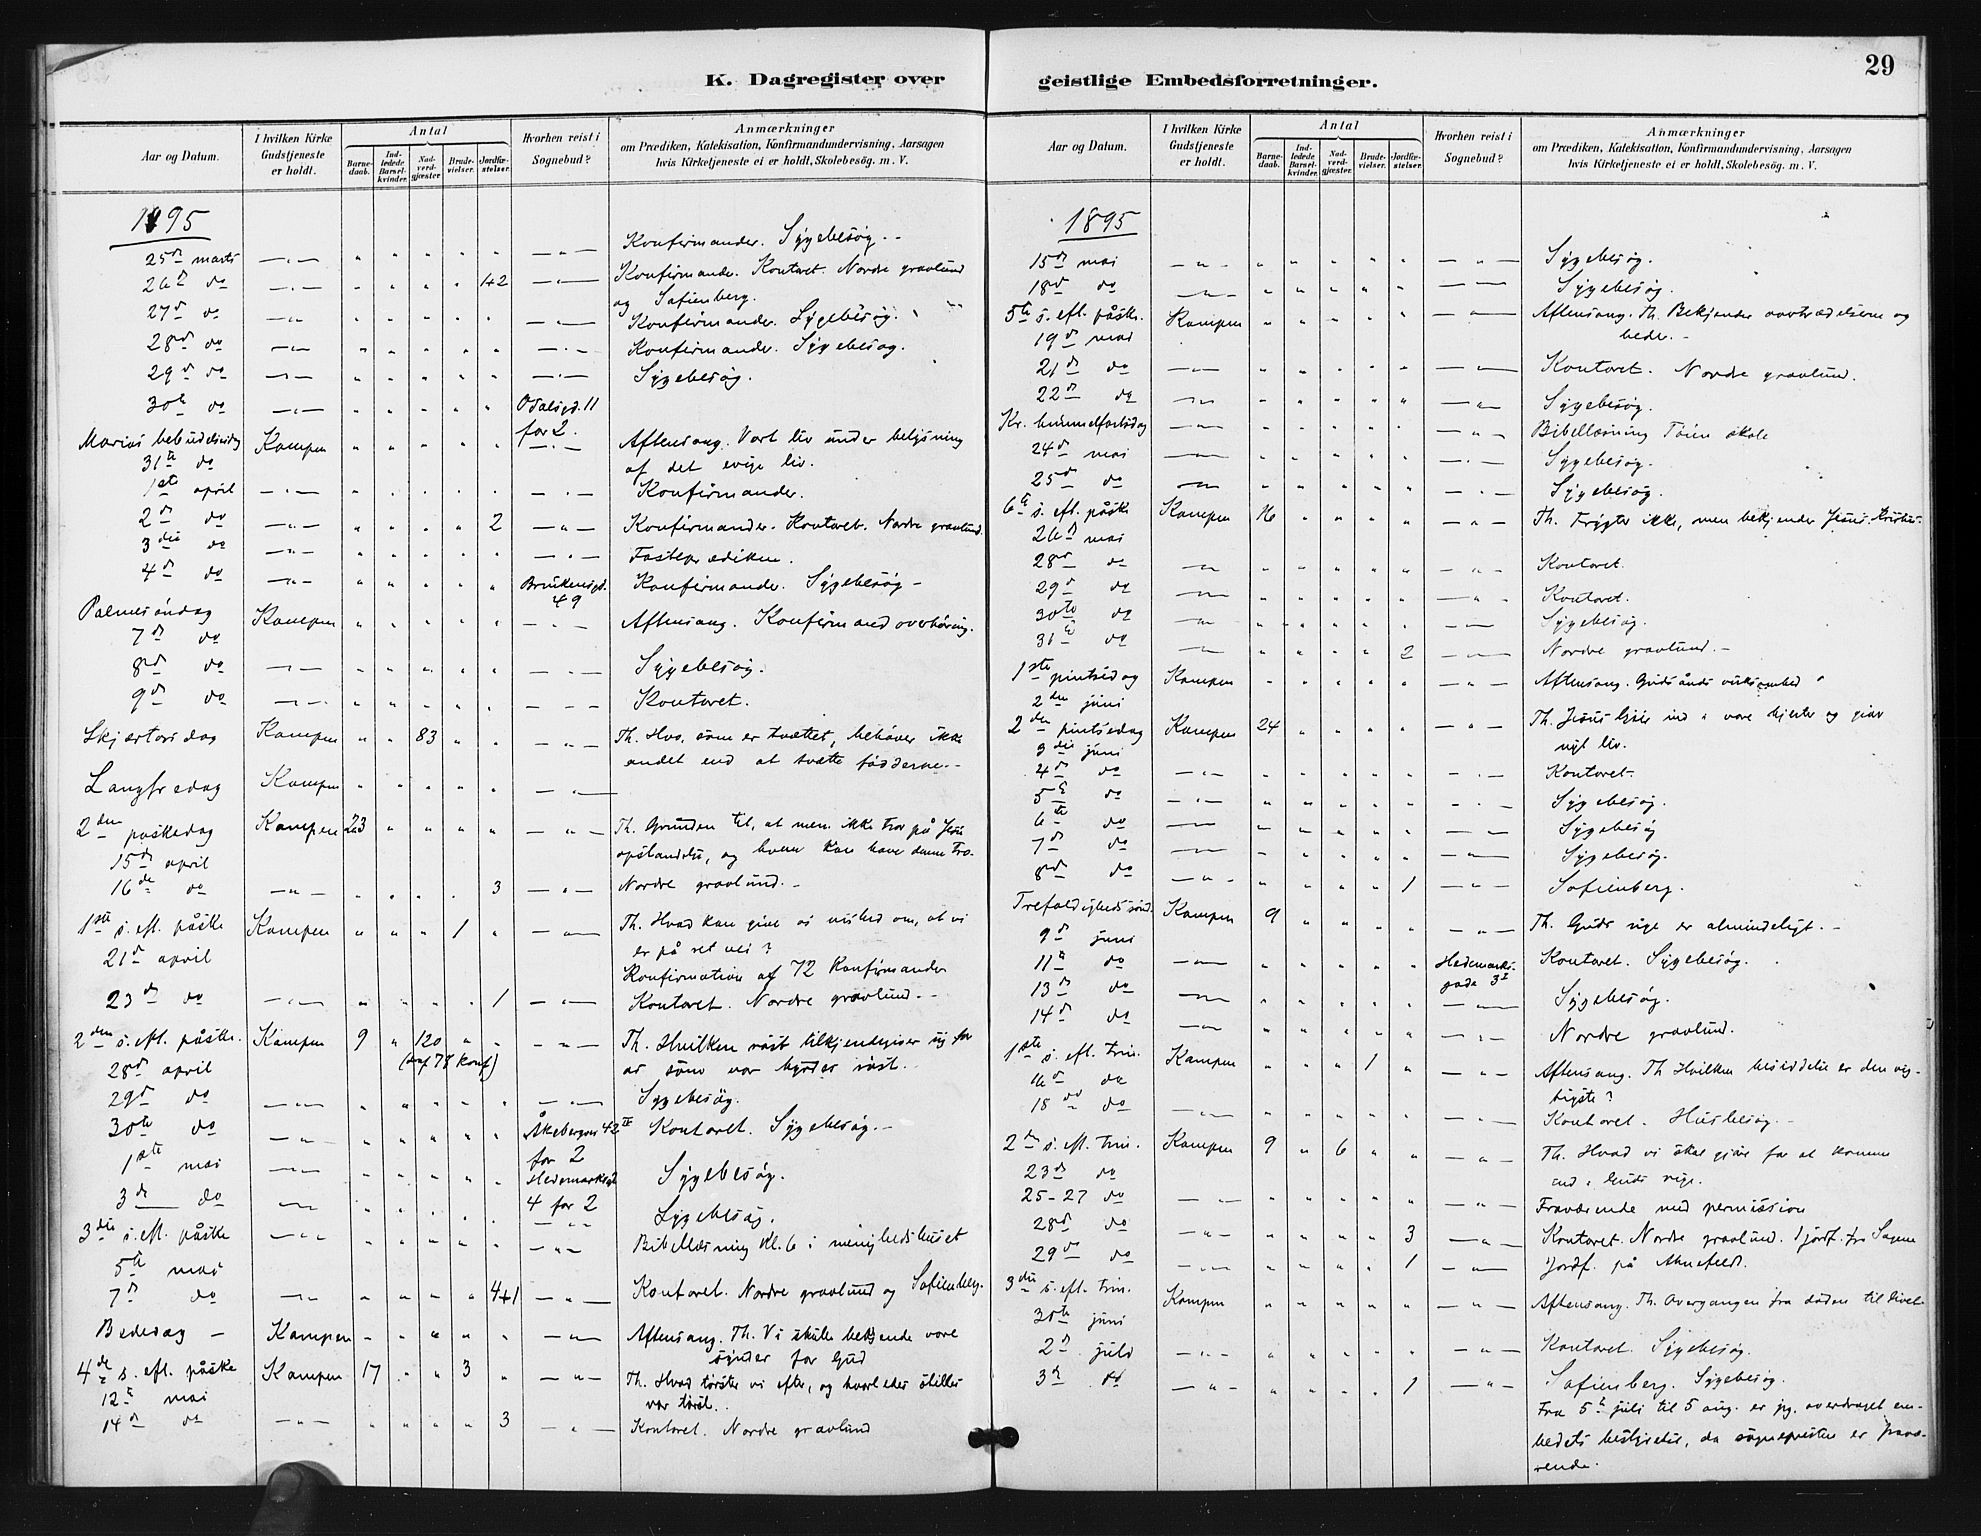 K. Dagregister over geistlige Embedsforretninger.
29
Aar og Datum. I hvilken Kirke Gudstjeneste er holdt. Antal Barnedaab. Indledede Barselkvinder. Nadverdgjæster Brudevielser. Jordfæstelser. Hvorhen reist i Sognebud? Anmærkninger om Prædiken, Katekisation, Konfirmandundervisning, Aarsagen hvis Kirketjeneste ei er holdt, Skolebesög. m. V.
1895
25d marts — " — " " " " " — " — Konfirmander. Sygebesøg.
26d do — " — " " " " 42 — " — Konfirmander. Kontoret. Nordre gravlund
og Sofienberg.
27d do — " — " " " " " — " — Konfirmander. Sygebesøg.
28d do — " — " " " " " — " — Konfirmander. Sygebesøg.
29d do — " — " " " " " — " — Sygebesøg.
30te do — " — " " " " " Odalsgd. 11
for 2.
Mariæ bebudelsesdag Kampen " " " " " — " — Aftensang. Vort liv under belysning
31te do af det evige liv.
1ste april — " — " " " " " — " — Konfirmander.
2d do — " — " " " " 2 — " — Konfirmander. Kontoret. Nordre gravlund.
3die do — " — " " " " " — " — Fasteprædiken.
4d do — " — " " " " " Brinkensgd. Konfirmander. Sygebesøg
49
Palmesöndag Kampen " " " " " — " — Aftensang. Konfirmandoverhöring.
7d do
8d do — " — " " " " " — " — Sygebesøg.
9d do — " — " " " " " — " — Kontoret.
Skjærtorsdag Kampen " " 83 " " — " — Th. Hvo, som er tvættet, behöver ikke
andet end at tvætte födderne.
Langfredag Kampen " " " " " — " —
2den påskedag Kampen 23 " " " " — " — Th. Grunden til, at men. ikke tror på Jesu
15d april opstandelse, og hvem kan have denne Tro.
16de do — " — " " " " 3 — " — Nordre gravlund.
1ste s. eft. påske Kampen " " " 1 " — " — Th. Hvad kan give os vished om, at vi
21d april er på ret vei?
Konfirmation af 72 Konfirmander
23d do — " — " " " " 1 — " — Kontoret. Nordre gravlund.
2den s. eft. påske. Kampen 9 " 120 " " — " — Th. Hvilken röst tilkjendegiver sig for
28d april (deraf 78 konf) os som vor hyrdes röst.
29d do — " — " " " " " — " — Sygebesøg.
30te do — " — " " " " " Åkebergvn 42 IV Kontoret. Sygebesøg.
for 2
1ste mai — " — " " " " " Hedemarksgd Sygebesøg.
4 for 2
3d do — " — " " " " " — " — Sygebesøg.
3die s. eft. påske — " — " " " " " — " — Bibellæsning kl. 6 i menighedshuset
5te mai
7d do — " — " " " " 4+1 — " — Kontoret. Nordre gravlund og Sofienberg.
Bededag Kampen " " " " " — " — Aftensang. Th. Vi skulle bekjende vore
synder for Gud
4de s. eft. påske Kampen 17 " " 3 " — " — Th. Hvad törster vi efter, og hvorledes stilles
12te mai vor törst.
14d do — " — " " " " 3 — " — Kontoret. Nordre gravlund
Aar og Datum. I hvilken Kirke Gudstjeneste er holdt. Antal Barnedaab. Indledede Barselkvinder. Nadverdgjæster. Brudevielser. Jordfæstelser. Hvorhen reist i Sognebud? Anmærkninger om Prædiken, Katekisation, Konfirmandundervisning, Aarsagen hvis Kirketjeneste ei er holdt, Skolebesög. m. V.
1895
15d mai — " — " " " " " — " — Sygebesøg.
18d do — " — " " " " " — " — Sygebesøg.
5te s. eft. påske. Kampen " " " " " — " — Aftensang. Th. Bekjender overtrædelserne og
19d mai bede.
21d do — " — " " " " " — " — Kontoret. Nordre gravlund.
22d do — " — " " " " " — " — Sygebesøg.
Kr. himmelfartsdag — " — " " " " " — " — Bibellæsning Töien skole
24d mai — " — " " " " " — " — Sygebesøg.
25d do — " — " " " " " — " — Sygebesøg.
6te s. eft. påske Kampen 16 " " " " — " — Th. Frygter ikke, men bekjender Jesus Kristus.
26d mai
28d do — " — " " " " " — " — Kontoret.
29d do — " — " " " " " — " — Kontoret.
30te do — " — " " " " " — " — Sygebesøg.
31te do — " — " " " " 2 — " — Nordre gravlund.
1ste pintsedag Kampen " " " " " — " — Aftensang. Guds ånds virksomhed
2den juni
2den pintsedag Kampen 24 " " " " — " — Th. Jesus lyser ind i vore hjerter og giver
3die juni nyt liv.
4d do — " — " " " " " — " — Kontoret.
5te do — " — " " " " " — " — Sygebesøg.
6te do — " — " " " " " — " — Sygebesøg
7d do — " — " " " " " — " — Sygebesøg.
8d do — " — " " " " 1 — " — Sofienberg.
Trefoldighedssönd. Kampen 9 " " " " — " — Th. Guds rige er almindeligt.
9d juni
11te do — " — " " " " " Hedemarks- Kontoret. Sygebesøg.
gade 3
13d do — " — " " " " " — " — Sygebesøg.
14d do — " — " " " " " — " — Nordre gravlund.
1ste s. eft. trin. Kampen " " " 1 " — " — Aftensang. Th Hvilken besiddelse er den vig-
16d do tigste?
18d do — " — " " " " " — " — Kontoret. Husbesøg.
2den s. eft. trin. Kampen 9 " 6 " " — " — Th. Hvad vi skal gjöre for at komme
23d do ind i Guds rige.
25-27 do — " — " " " " " — " — Fraværende med permission
28d do — " — " " " " 3 — " — Kontoret. Nordre gravlund. 1 jordf. fra Sagene
29d do — " — " " " " 1 — " — Jordf. på
3die s. eft. trin. Kampen " " " " " — " — Aftensang. Th. Overgangen fra döden til livet.
30te juni
2d juli — " — " " " " " — " — Kontoret. Sygebesøg.
3d do — " — " " " " 1 — " — Sofienberg. Sygebesøg.
Fra 5te juli til 5 aug. er jeg overdraget em-
bedets bestyrelse, da sognepresten er fravæ-
rende.